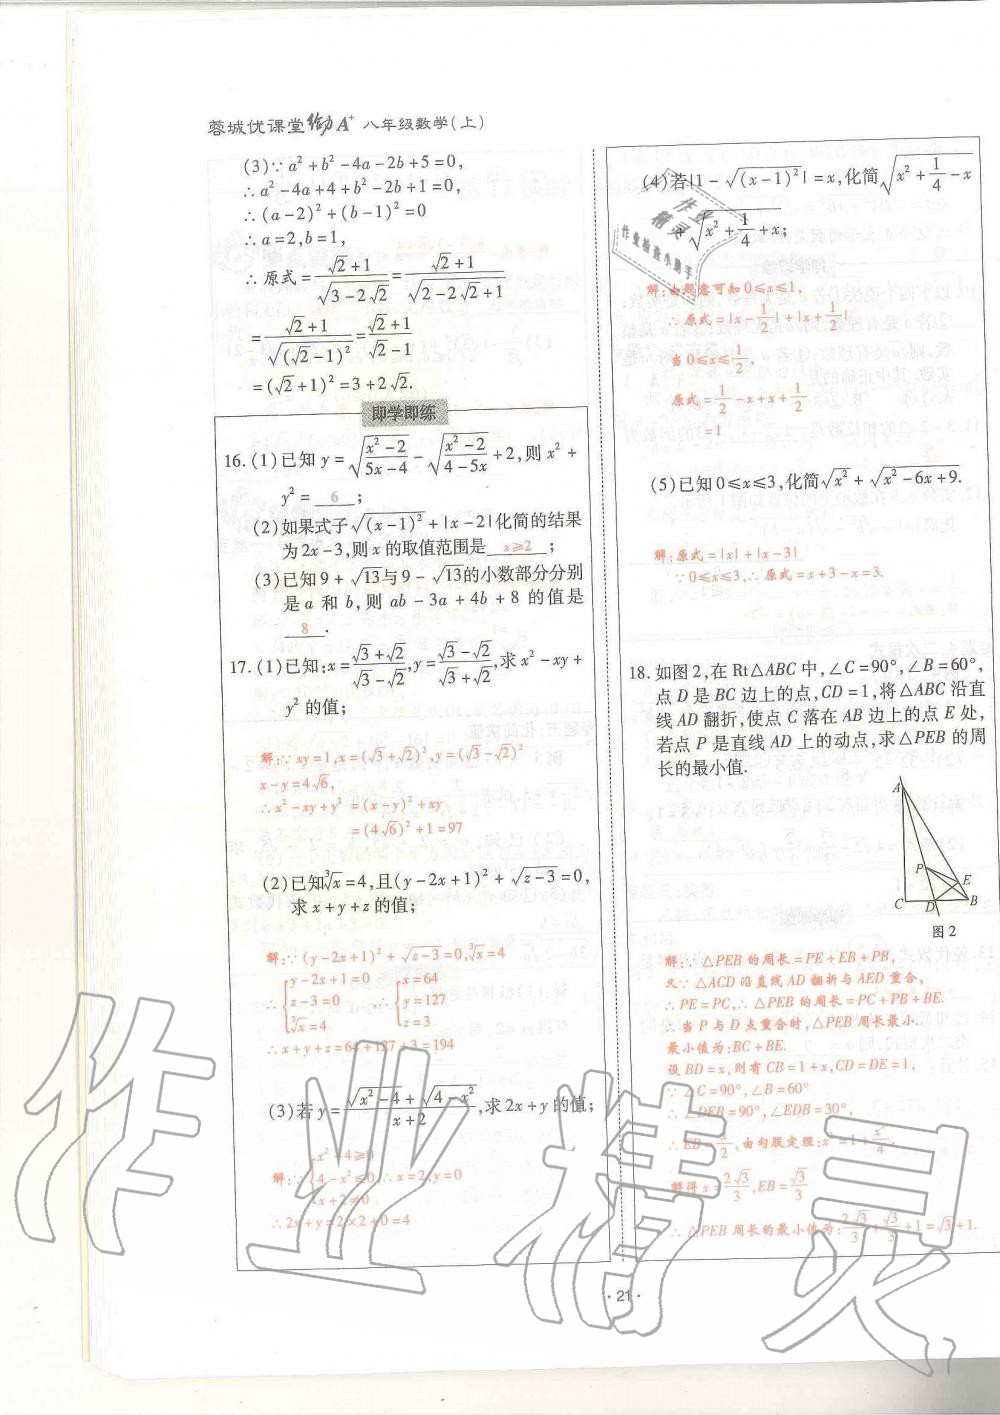 蓉城优课堂 给力A⁺ 八年级数学(上)
(3)∵a²+b²-4a-2b+5=0,
∴a²-4a+4+b²-2b+1=0,
∴(a-2)²+(b-1)²=0
∴a=2,b=1,
∴原式=(√2+1)/√(3-2√2)=(√2+1)/√(2-2√2+1)
=(√2+1)/√((√2-1)²)=(√2+1)/(√2-1)
=(√2+1)²=3+2√2.
即学即练
16.(1)已知y=√((x²-2)/(5x-4))-√((x²-2)/(4-5x))+2,则x²+
y²= 6 ;
(2)如果式子√((x-1)²)+|x-2|化简的结果
为2x-3,则x的取值范围是 x≥2 ;
(3)已知9+√13与9-√13的小数部分分别
是a和b,则ab-3a+4b+8的值是
8 .
17.(1)已知:x=(√3+√2)/(√3-√2),y=(√3-√2)/(√3+√2),求x²-xy+
y²的值;
解:∵xy=1,x=(√3+√2)²,y=(√3-√2)²
x-y=4√6,
∴x²-xy+y²=(x-y)²+xy
=(4√6)²+1=97
(2)已知∛x=4,且(y-2x+1)²+√(z-3)=0,
求x+y+z的值;
解:∵(y-2x+1)²+√(z-3)=0,∛x=4
∴{y-2x+1=0 z-3=0 ∛x=4 ,∴{x=64 y=127 z=3
∴x+y+z=64+127+3=194
(3)若y=(√(x²-4)+√(4-x²))/(x+2),求2x+y的值;
解:∵{x²-4≥0 4-x²≥0 x+2≠0 ∴x=2,y=0
∴2x+y=2×2+0=4
(4)若|1-√((x-1)²)|=x,化简√(x²+1/4-x)
+√(x²+1/4+x);
解:由题意可知0≤x≤1,
∴原式=|x-1/2|+|x+1/2|
当0≤x≤1/2,
原式=1/2-x+x+1/2
=1
(5)已知0≤x≤3,化简√(x²)+√(x²-6x+9).
解:原式=|x|+|x-3|
∵0≤x≤3,∴原式=x+3-x=3.
18.如图2,在Rt△ABC中,∠C=90°,∠B=60°,
点D是BC边上的点,CD=1,将△ABC沿直
线AD翻折,使点C落在AB边上的点E处,
若点P是直线AD上的动点,求△PEB的周
长的最小值.
A
P
E
C
D
B
图2
解:∵△PEB的周长=PE+EB+PB,
又∵△ACD沿直线AD翻折与AED重合,
∴PE=PC,∴△PEB的周长=PC+PB+BE.
∴当P与D点重合时,△PEB周长最小.
最小值为:BC+BE.
设BD=x,则有CB=1+x,CD=DE=1,
∵∠C=90°,∠B=60°
∴∠DEB=90°,∠EDB=30°,
∴EB=x/2,由勾股定理:x²=1+x²/4,
解得x=2√3/3,EB=√3/3
∴△PEB周长的最小值为:2√3/3+√3/3+1=√3+1.
· 21 ·
作业精灵
作业检查小助手
作业精灵